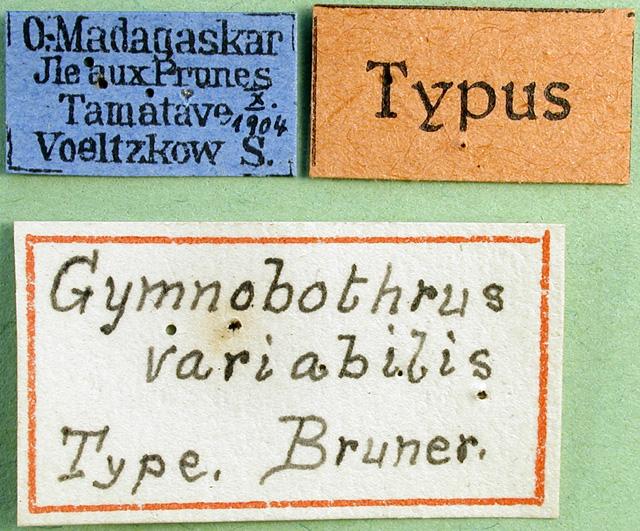 O.Madagaskar
Jle aux Prunes
Tamatave X.
1904
Voeltzkow S.
Typus
Gymnobothrus
variabilis
Type. Bruner.